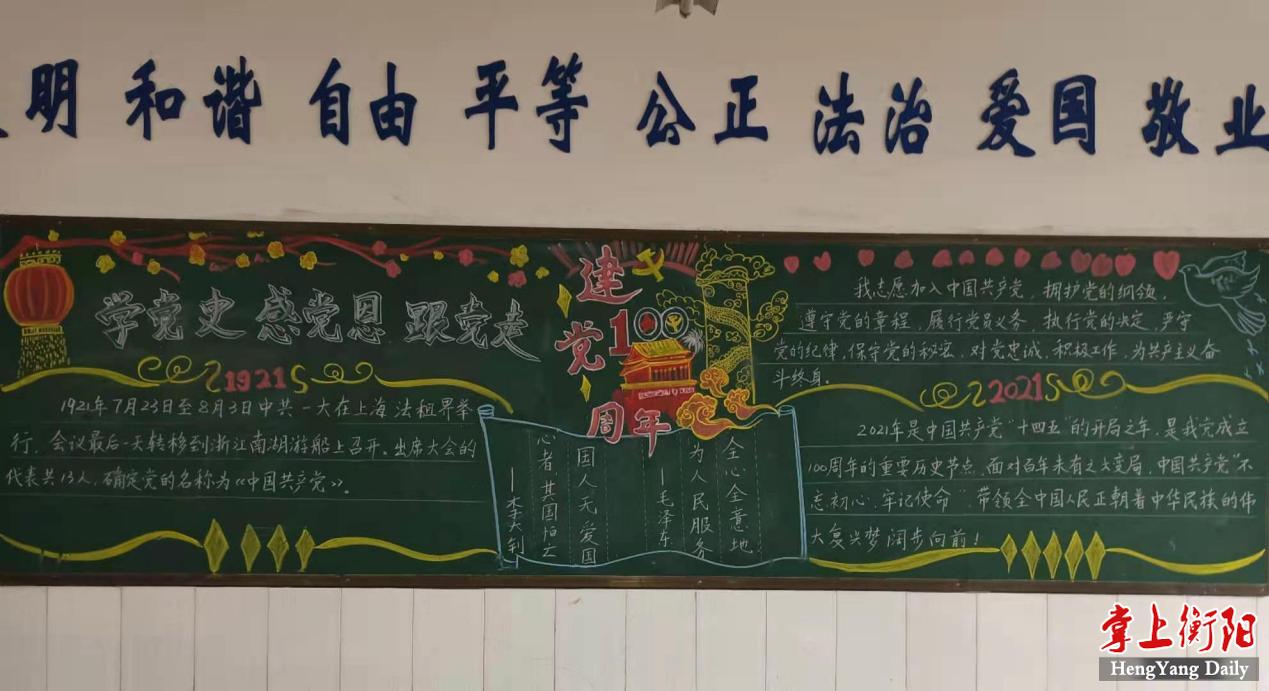 明 和谐 自由 平等 公正 法治 爱国 敬业
学党史 感党恩 跟党走
1921
1921年7月23日至8月3日中共一大在上海法租界举
行，会议最后一天转移到浙江南湖游船上召开。出席大会的
代表共13人，确定党的名称为《中国共产党》。
建
党
100
周年
全心全意地
为人民服务
——毛泽东
国人无爱国
心者其国恒亡
——李大钊
我志愿加入中国共产党，拥护党的纲领，
遵守党的章程，履行党员义务，执行党的决定，严守
党的纪律，保守党的秘密，对党忠诚，积极工作，为共产主义奋
斗终身。
2021
2021年是中国共产党“十四五”的开局之年，是我党成立
100周年的重要历史节点，面对百年未有之大变局，中国共产党“不
忘初心，牢记使命”带领全中国人民正朝着中华民族的伟
大复兴梦阔步向前！
掌上衡阳
HengYang Daily